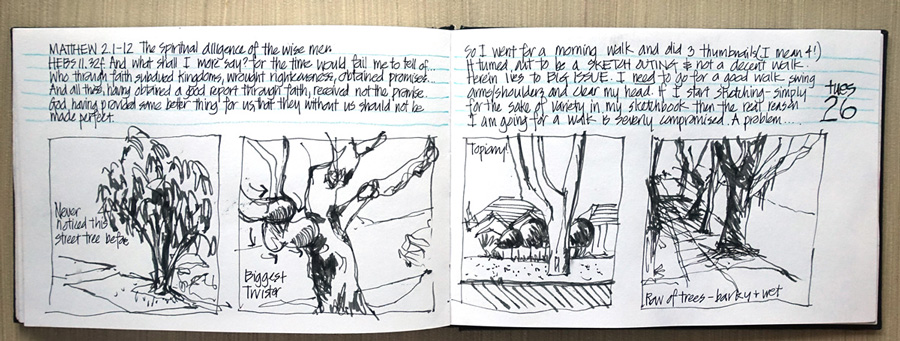 MATTHEW 2.1-12 The spiritual diligence of the wise men
HEBS 11.32f. And what shall I more say? for the time would fail me to tell of..
Who through faith subdued kingdoms, wrought righteousness, obtained promises...
And all these, having obtained a good report through faith, received not the promise.
God having provided some better thing for us, that they without us should not be
made perfect.
Never
noticed this
street tree before
Biggest
Twister
So I went for a morning walk and did 3 thumbnails (I mean 4!)
It turned out to be a SKETCH OUTING & not a decent walk.
Herein lies to BIG ISSUE. I need to go for a good walk swing
arms/shoulders and clear my head. If I start sketching - simply
for the sake of variety in my sketchbook then the real reason
I am going for a walk is severly compromised. A problem....
tues
26
Topiary!
Row of trees - barky + wet